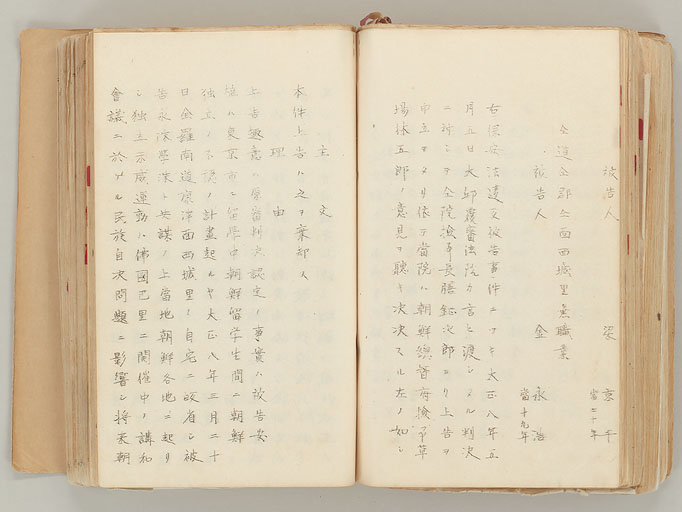 被告人 梁京千
當二十年
仝道仝郡仝面西城里無職業
被告人 金永浩
當十九年
右保安法違反被告事件ニ付キ大正八年五
月五日大邱覆審法院カ言ヒ渡シタル判決
ニ対シテ仝院検事長膳鉦次郎ヨリ上告ヲ
申立テタリ依テ當院ハ朝鮮総督府検事草
場林五郎ノ意見ヲ聴キ決スル左ノ如シ
主文
本件上告ハ之ヲ棄却ス
理由
上告趣意ハ原審判決認定ノ事實ハ被告安
ハ東京市ニ留學中朝鮮留学生間ニ朝鮮
独立ノ不穏ノ計畫起ルヤ大正八年三月二十
日全羅南道康津面西城里ノ自宅ニ皈省シ被
告永深學深ト共謀ノ上當地朝鮮各地ニ起リ
シ独立示威運動ハ佛國巴里ニ開催中ノ講和
會議ニ於ケル民族自決問題ニ影響シ将来朝